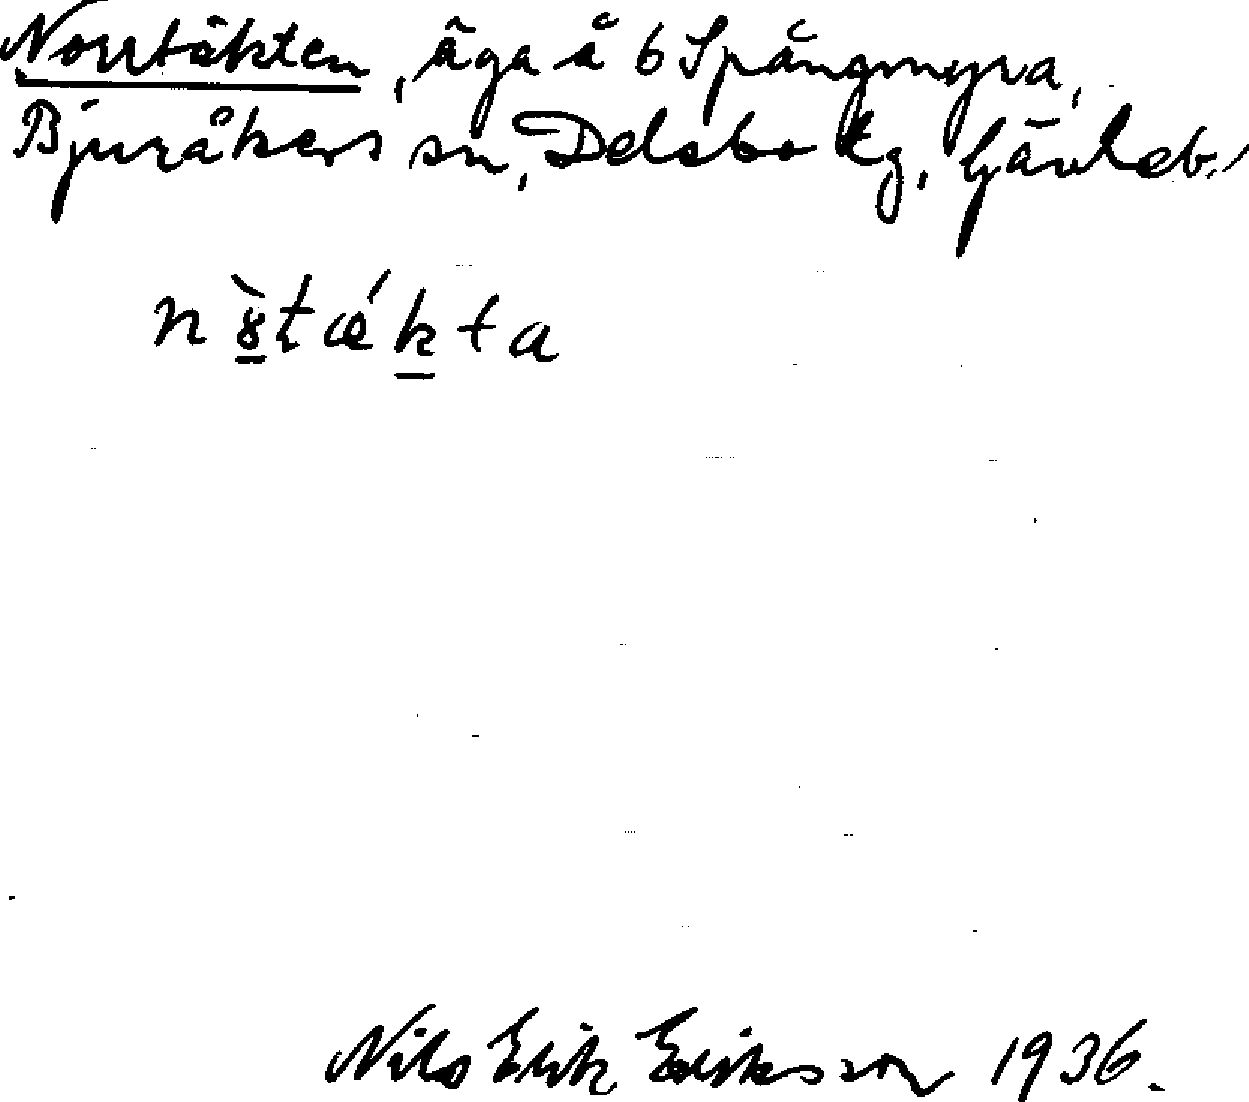 Norrtäkten, äga å 6 Spångmyra,
Bjuråkers sn, Delsbo tg, Gävleb.
Nils Erik Eriksson 1936.